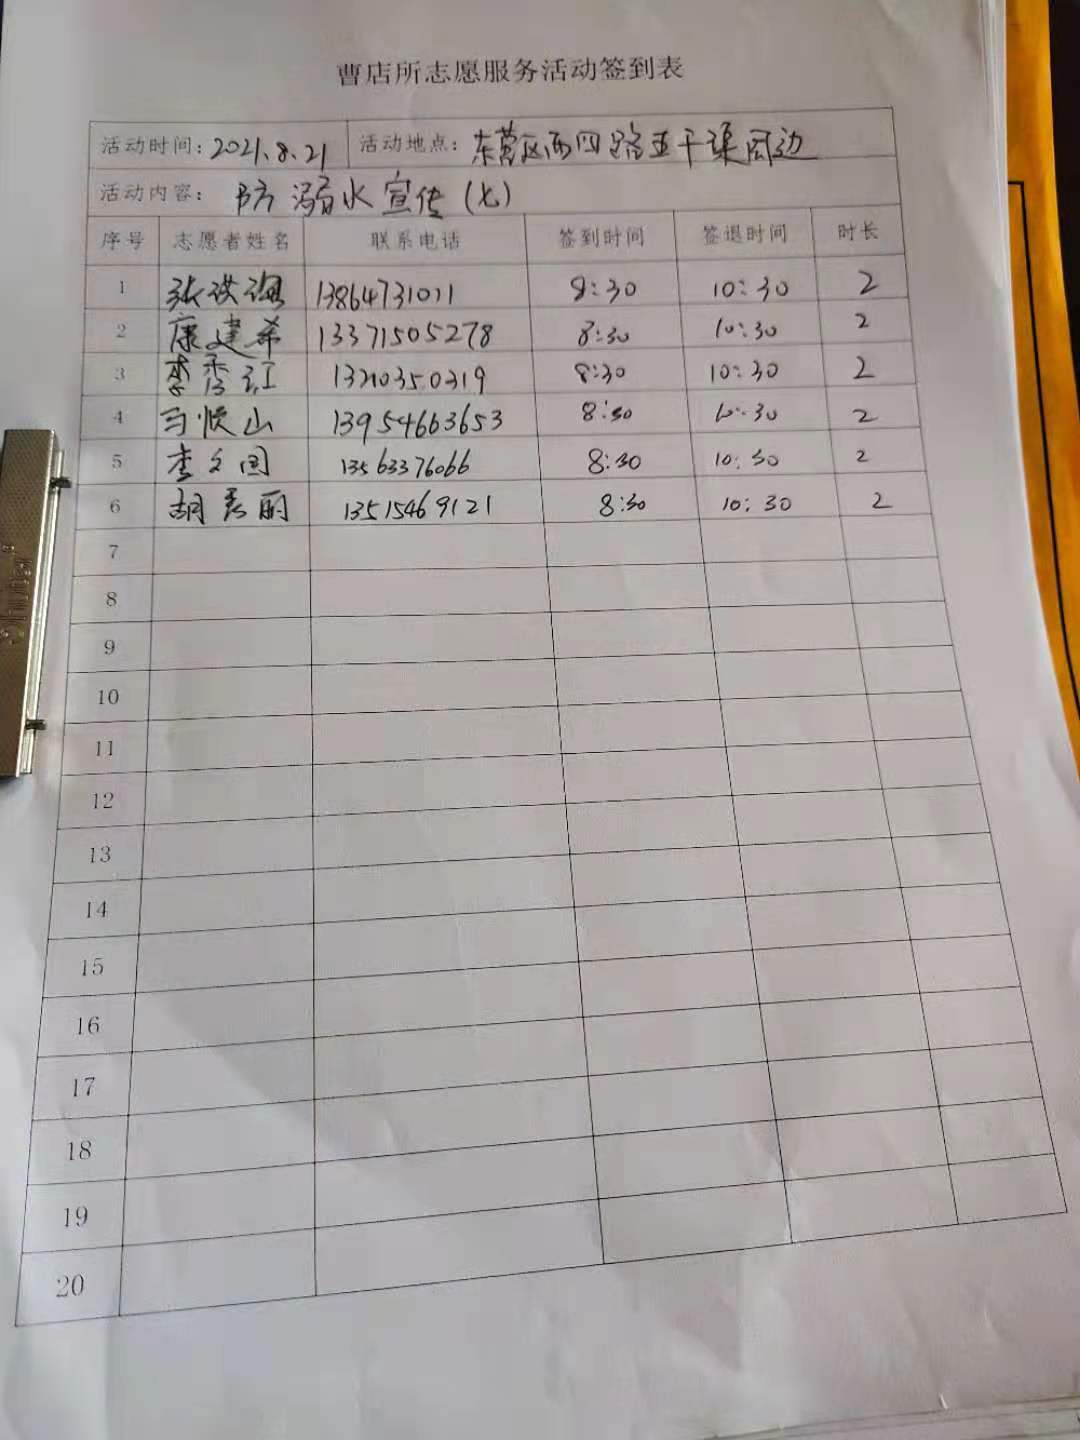 曹店所志愿服务活动签到表
活动时间：2021.8.21 活动地点：东营区西四路五干渠周边
活动内容：防溺水宣传（七）
序号 志愿者姓名 联系电话 签到时间 签退时间 时长
1 张洪海 13864731011 8:30 10:30 2
2 康建希 13371505278 8:30 10:30 2
3 李秀江 13210350319 8:30 10:30 2
4 马恒山 13954663653 8:30 10:30 2
5 李文国 13563376066 8:30 10:30 2
6 胡秀丽 13515469121 8:30 10:30 2
7
8
9
10
11
12
13
14
15
16
17
18
19
20